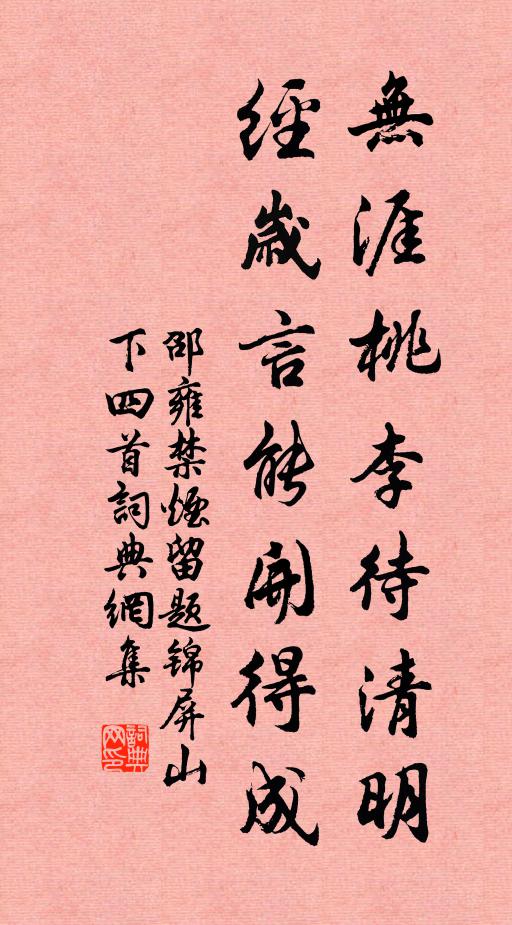 無涯桃李待清明
經歲言能開得成
邵雍禁煙留題錦屏山
下四首詞典網集
詞典
网印